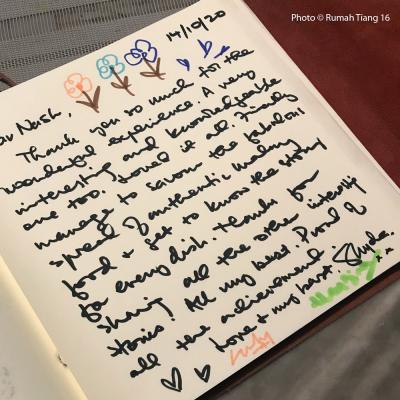 Photo © Rumah Tiang 16
14/10/20
Dear Nash,
Thank you so much for the
wonderful experience. A very
interesting and knowledgeable
one too. Loved it all. Finally
manage to savour the fabulous
spread of authentic malay
food & get to know the story
for every dish. Thanks for
sharing all the other interesting
stories! All my best. Proud of
all the achievement.
Love & my best.